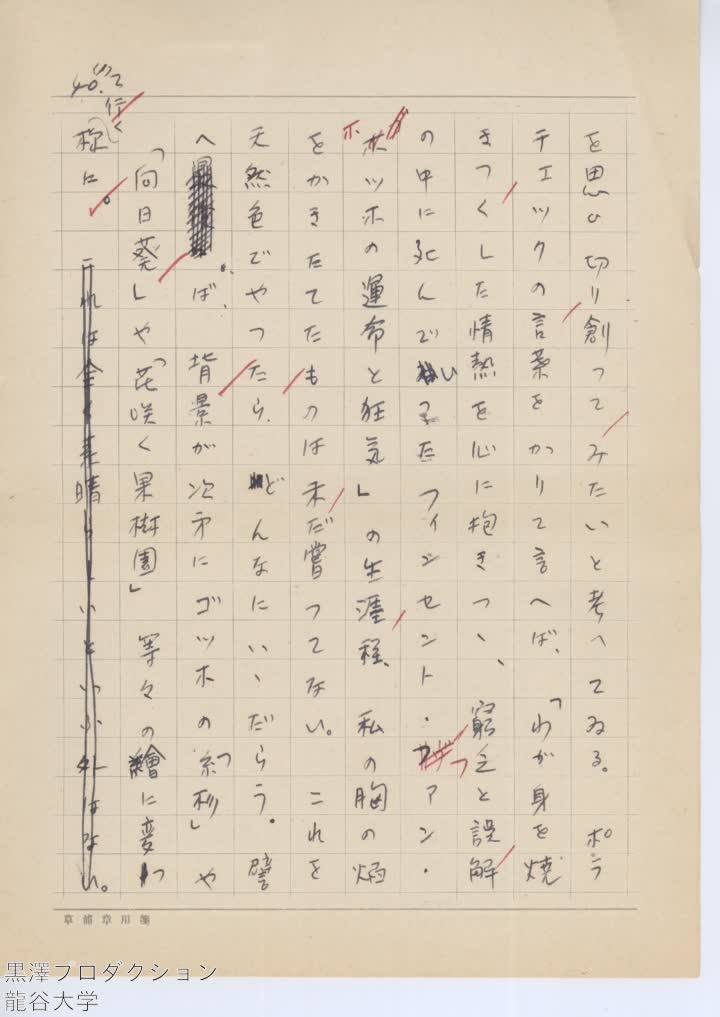 を思ひ切り創ってみたいと考へてゐる。ポラ
チェックの言葉をかりて言へば、「わが身を焼
きつくした情熱を心に抱きつゝ、窮乏と誤解
の中に死んで いつた フィンセント・ファン・
ホッホの運命と狂気」の生涯程、私の胸の焔
をかきたてたものは未だ嘗つてない。これを
天然色でやつたら、どんなにいゝだらう。譬
へば、背景が次第にゴッホの「糸杉」や
「向日葵」や「花咲く果樹園」等々の繪に変わつ
て行く様に。これは全く素晴らしいといふ外はない。
40.
草稿章用箋
黒澤プロダクション
龍谷大学